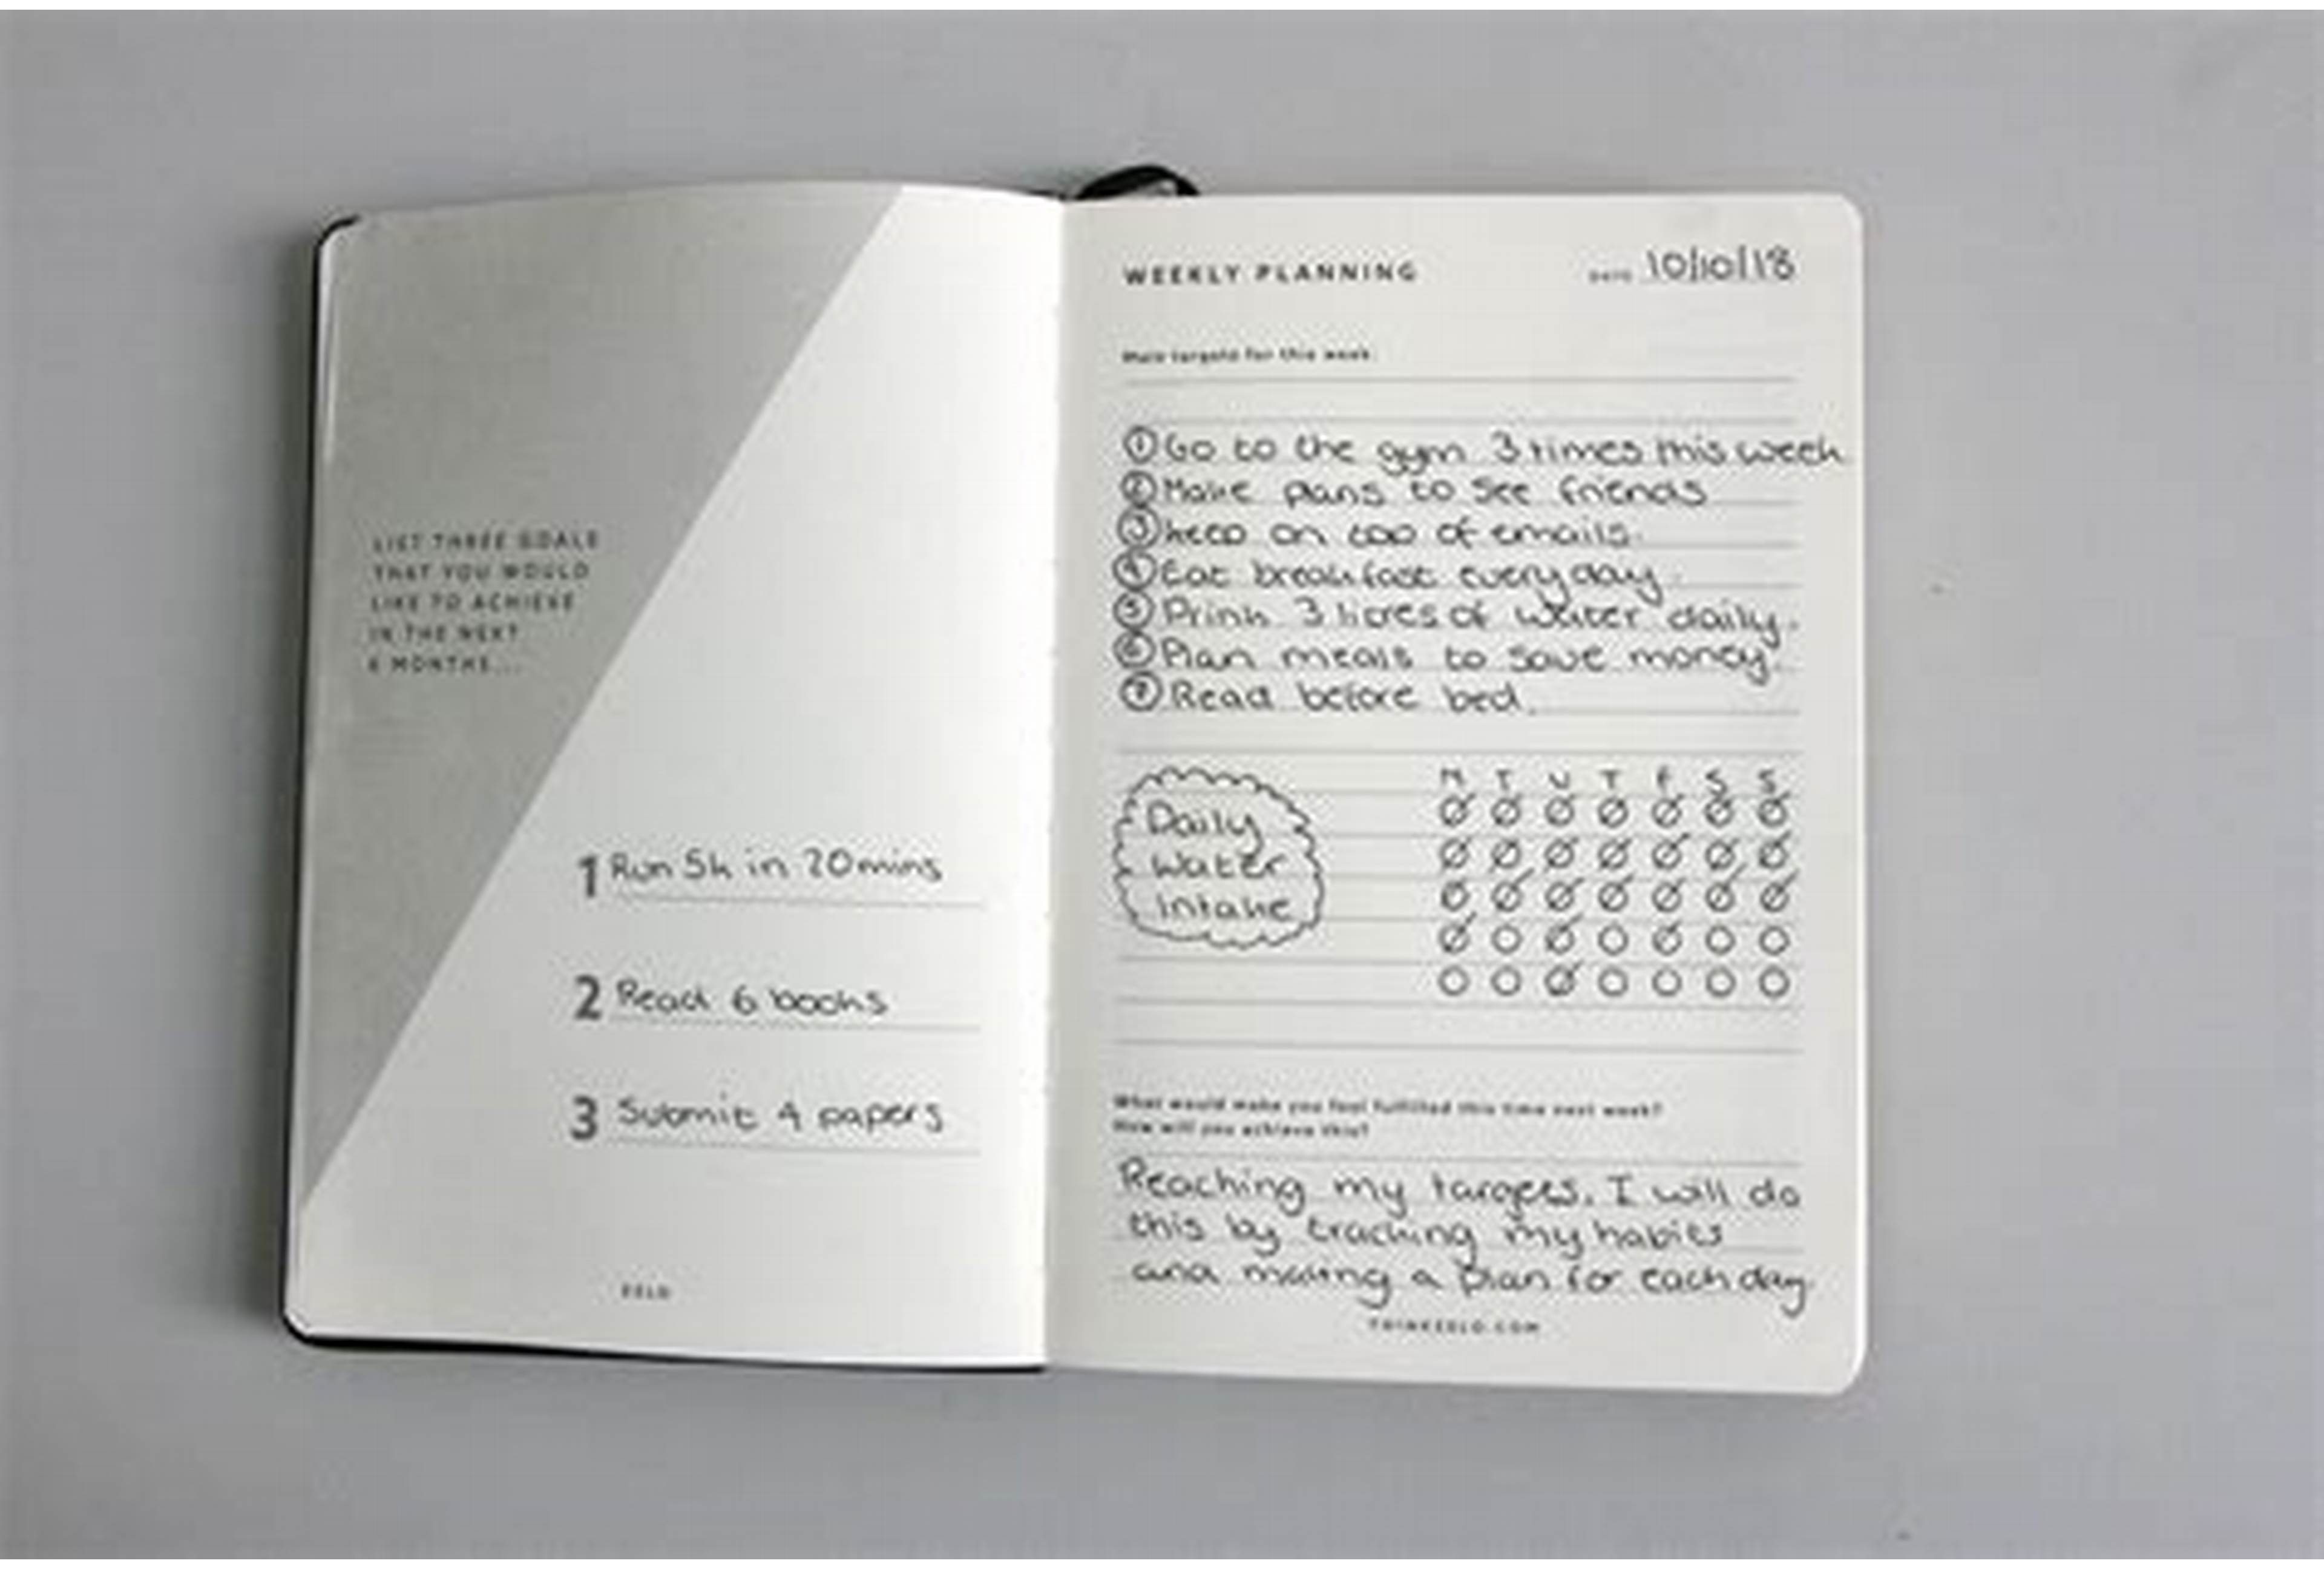 LIST THREE GOALS
THAT YOU WOULD
LIKE TO ACHIEVE
IN THE NEXT
6 MONTHS...
1 Run 5k in 20mins
2 Read 6 books
3 Submit 4 papers
WEEKLY PLANNING DATE 10/10/18
Main targets for this week:
① Go to the gym 3 times this week
② Make plans to see friends
③ keep on top of emails.
④ Eat breakfast everyday.
⑤ Drink 3 litres of water daily.
⑥ Plan meals to save money.
⑦ Read before bed.
M T W T F S S
Daily
Water
Intake
What would make you feel fulfilled this time next week?
How will you achieve this?
Reaching my targets. I will do
this by tracking my habits
and making a plan for each day.
THINKEELO.COM